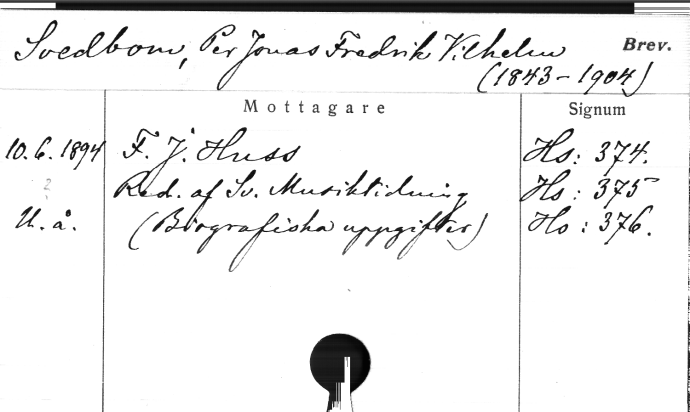 Svedbom, Per Jonas Fredrik Vilhelm Brev.
(1843-1904)
Mottagare Signum
10.6.1894 F. J. Huss Hs: 374.
? Red. af Sv. Musiktidning Hs: 375
U. å. (Biografiska uppgifter) Hs: 376.